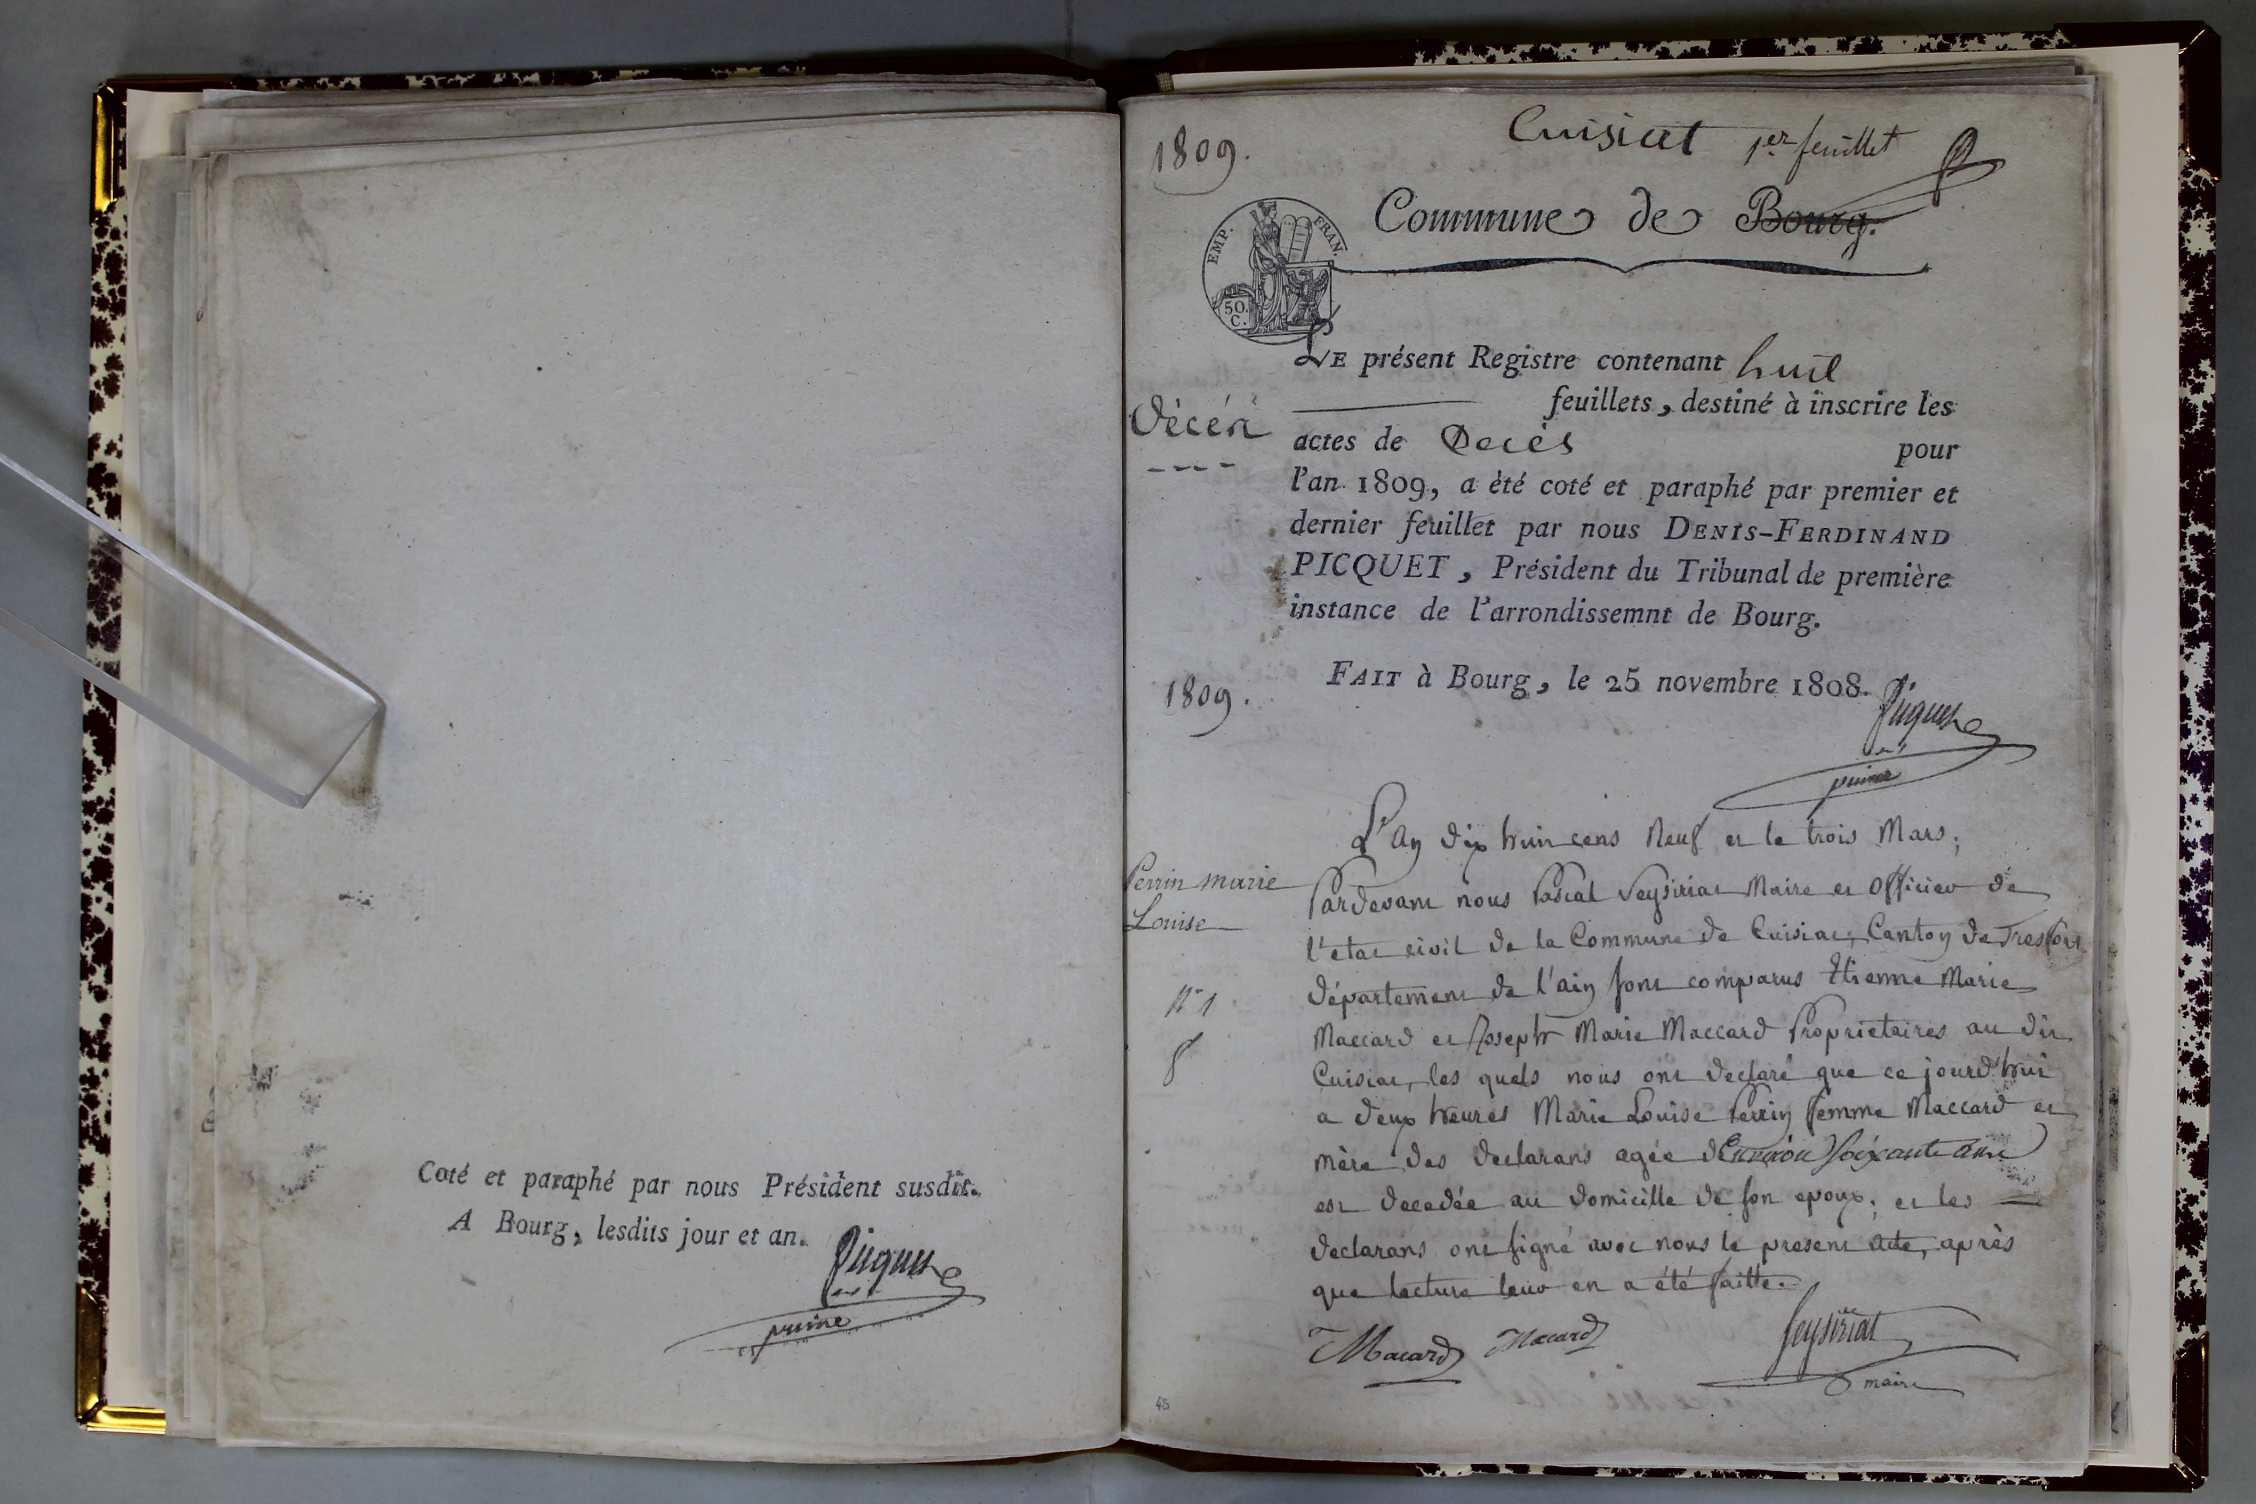 Coté et paraphé par nous Président susdit.
A Bourg, lesdits jour et an.
Picquet
1809.
Cuisiat 1er feuillet
Commune de Bourg.
EMP. FRAN.
50. C.
LE présent Registre contenant huit
feuillets, destiné à inscrire les
Décés
actes de Decès pour
l'an 1809, a été coté et paraphé par premier et
dernier feuillet par nous DENIS-FERDINAND
PICQUET, Président du Tribunal de première
instance de l'arrondissemnt de Bourg.
FAIT à Bourg, le 25 novembre 1808.
1809.
Picquet
L'an dix huit cens Neuf et le trois Mars,
Perrin marie
Louise
Pardevant nous Pascal Seysiriat Maire et Officier de
l'etat civil de la Commune de Cuisiat, Canton de Treffort
N° 1
département de l'ain sont comparus Etienne Marie
Maccard et Joseph Marie Maccard Proprietaires au dit
Cuisiat, les quels nous ont declaré que ce jourd'hui
a deux heures Marie Louise Perrin femme Maccard et
mère des declarans agée d'Environ soixante ans
est decedée au domicille de son epoux, et les
declarans ont signé avec nous le present acte, après
que lecture leur en a été faitte.
Macard Macard Seysiriat
maire
48